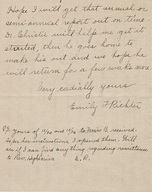 Hope I will get that annual or
semi-annual report out on time.
Dr. Christie will help me get it
started, then he goes home to
make his out and we hope he
will return for a few weeks more
Very cordially yours
Emily F. Richter
P.S. yours of to Miss G. received.
As per her instructions I opened them. Will
see if I can find any thing regarding remittance
to
E. R.